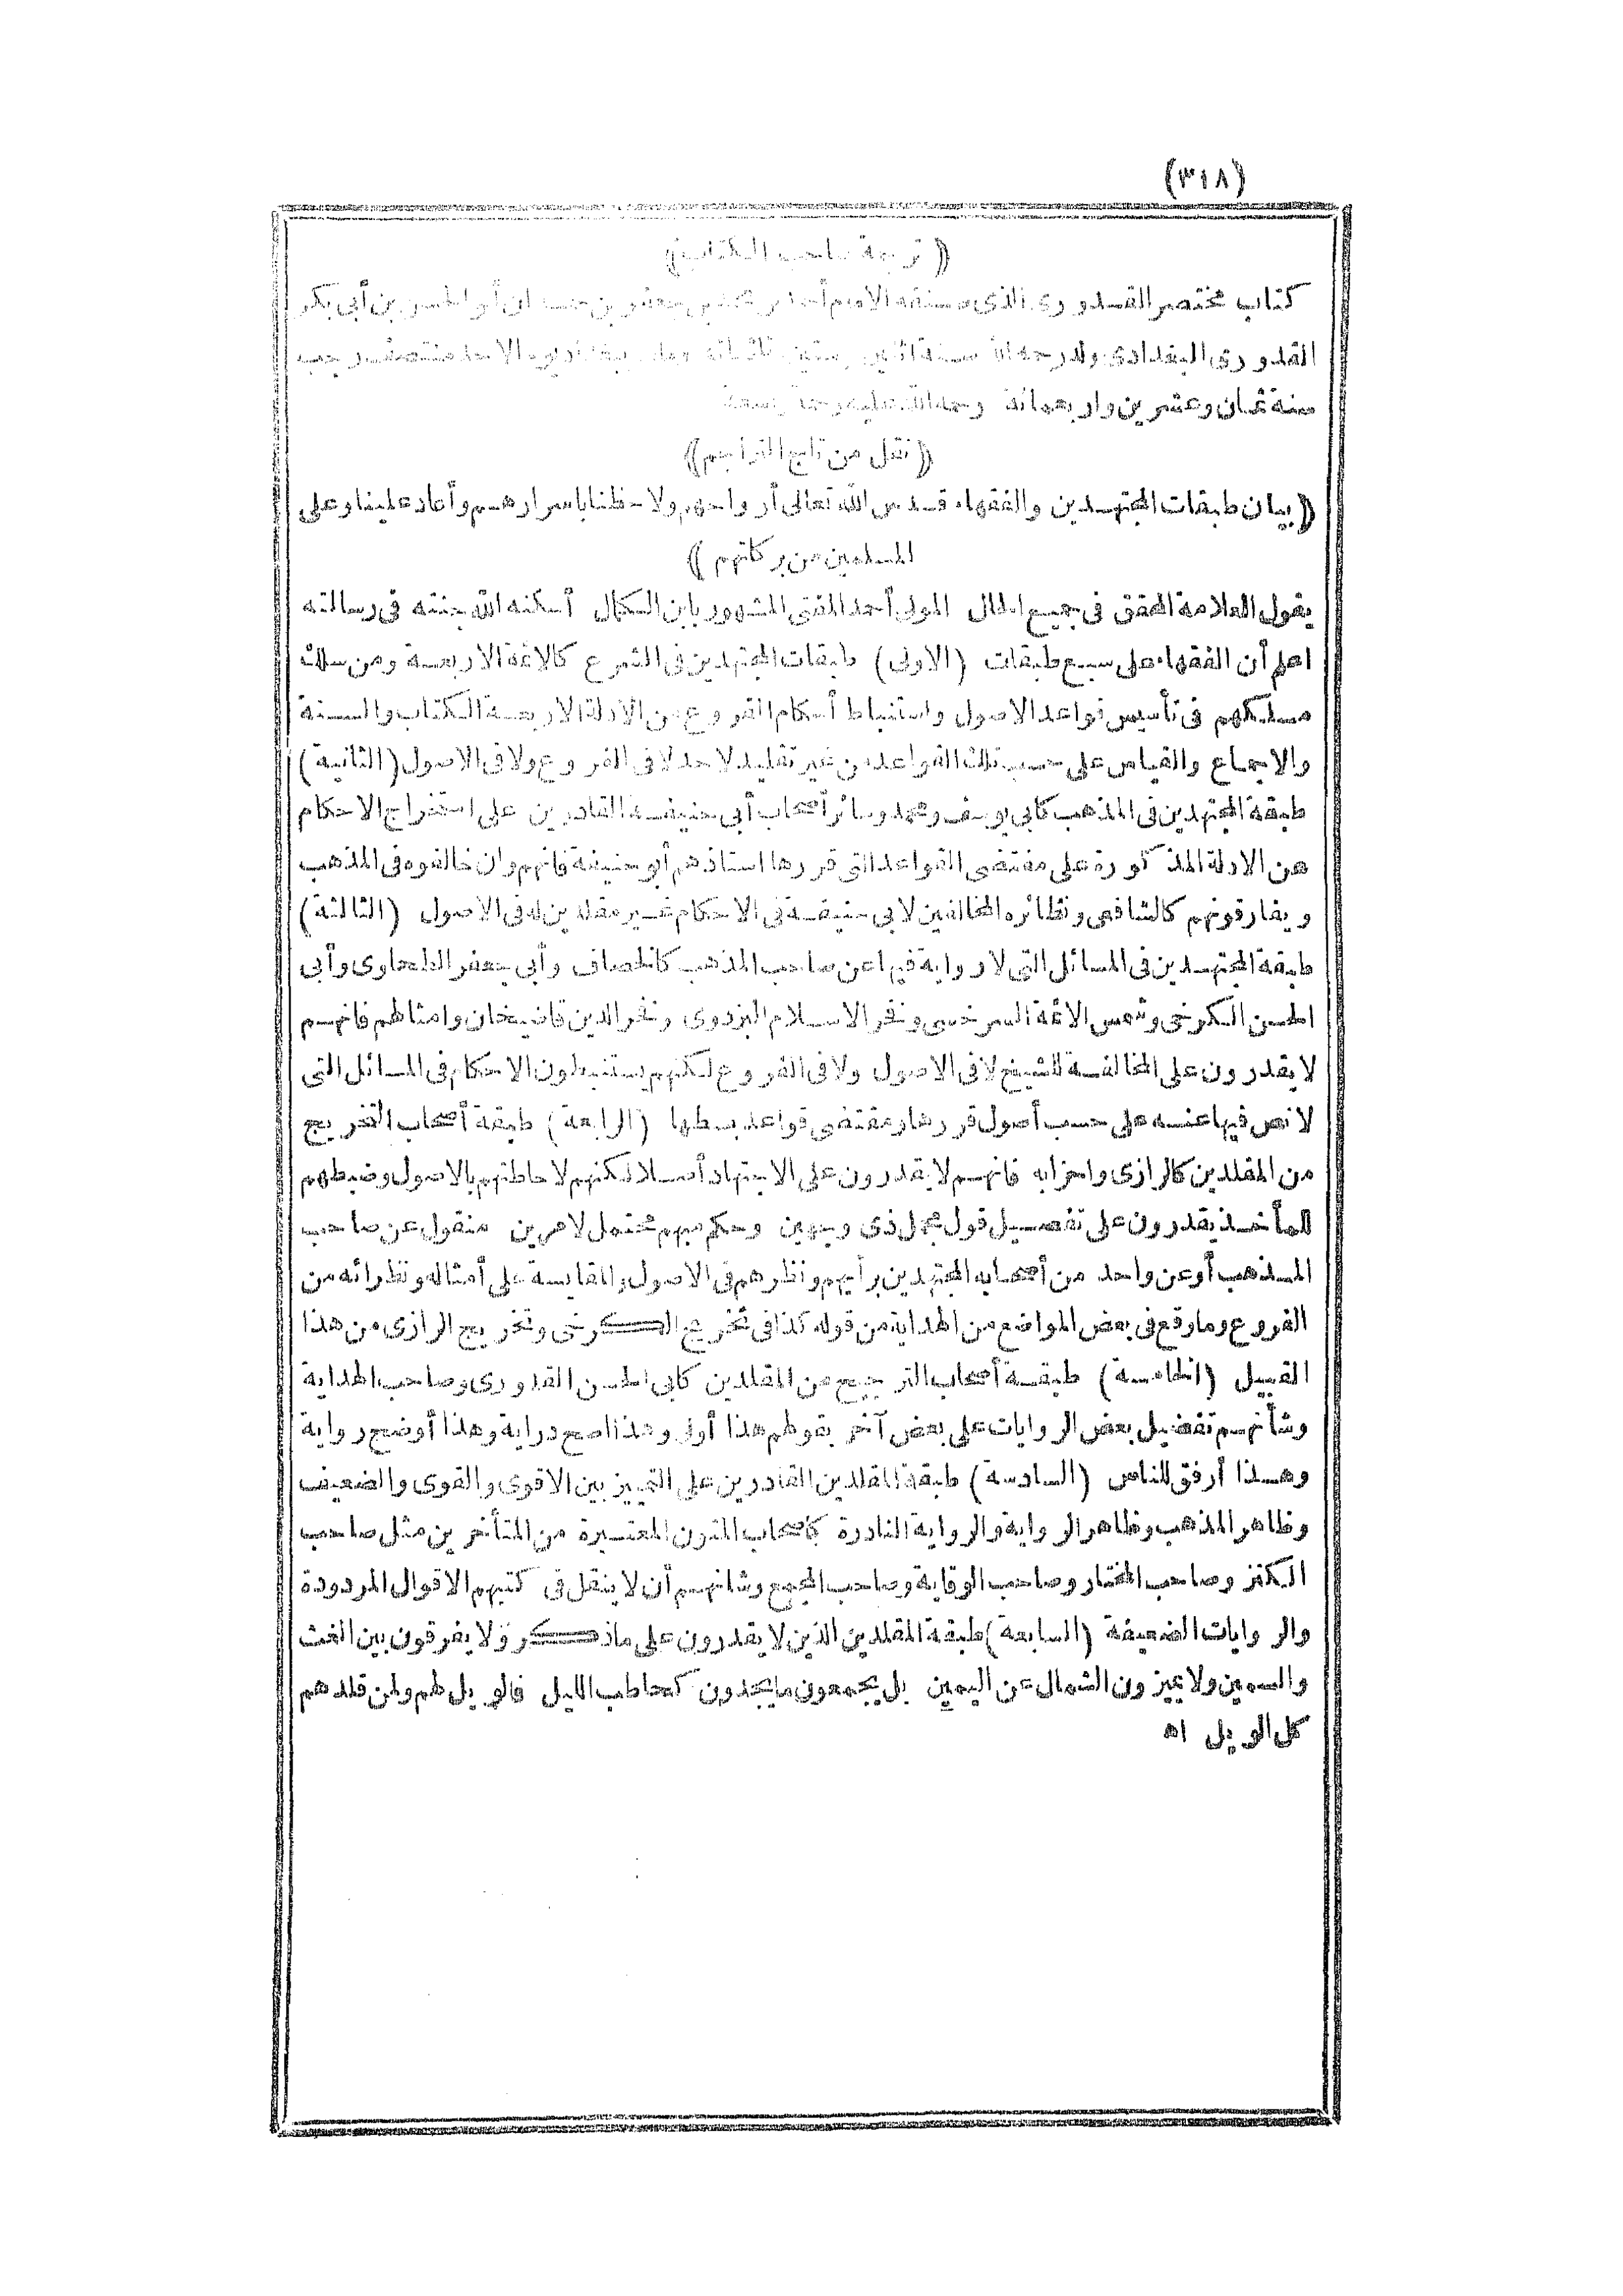 (٣١٨)
(( ترجمة صاحب الكتاب ))
كتاب مختصر القدورى الذى صنفه الامام أحمد بن محمد بن جعفر بن حمدان أبو الحسن بن أبى بكر
القدورى البغدادى ولد رحمه الله سنة اثنين وستين وثلثمائة ومات ببغداد يوم الاحد منتصف رجب
سنة ثمان وعشرين واربعمائة رحمة الله عليه رحمة واسعة
(( نقل من تاج التراجم ))
(( بيان طبقات المجتهدين والفقهاء قدس الله تعالى أرواحهم ولاحظنا باسرارهم وأعاد علينا وعلى
المسلمين من بركاتهم ))
يقول العلامة المحقق فى جميع الحال المولى أحمد المفتى المشهور بابن الكمال أسكنه الله جنته فى رسالته
اعلم أن الفقهاء على سبع طبقات (الاولى) طبقات المجتهدين فى الشرع كالائمة الاربعة ومن سلك
مسلكهم فى تأسيس قواعد الاصول واستنباط أحكام الفروع عن الادلة الاربعة الكتاب والسنة
والاجماع والقياس على حسب تلك القواعد من غير تقليد لاحد لا فى الفروع ولا فى الاصول (الثانية)
طبقة المجتهدين فى المذهب كابى يوسف ومحمد وسائر أصحاب أبى حنيفة القادرين على استخراج الاحكام
عن الادلة المذكورة على مقتضى القواعد التى قررها استاذهم أبو حنيفة فانهم وان خالفوه فى المذهب
ويفارقونهم كالشافعى ونظائره المخالفين لابى حنيفة فى الاحكام غير مقلدين له فى الاصول (الثالثة)
طبقة المجتهدين فى المسائل التى لا رواية فيها عن صاحب المذهب كالخصاف وأبى جعفر الطحاوى وأبى
الحسن الكرخى وشمس الائمة السرخسى وفخر الاسلام البزدوى وفخر الدين قاضيخان وامثالهم فانهم
لا يقدرون على المخالفة للشيخ لا فى الاصول ولا فى الفروع لكنهم يستنبطون الاحكام فى المسائل التى
لا نص فيها عنه على حسب أصول قررها ومقتضى قواعد بسطها (الرابعة) طبقة أصحاب التخريج
من المقلدين كالرازى واحزابه فانهم لا يقدرون على الاجتهاد أصلا لكنهم لاحاطتهم بالاصول وضبطهم
للمأخذ يقدرون على تفصيل قول مجمل ذى وجهين وحكم مبهم محتمل لامرين منقول عن صاحب
المذهب أو عن واحد من أصحابه المجتهدين برأيهم ونظرهم فى الاصول والمقايسة على أمثاله ونظرائه من
الفروع وما وقع فى بعض المواضع من الهداية من قوله كذا فى تخريج الكرخى وتخريج الرازى من هذا
القبيل (الخامسة) طبقة أصحاب الترجيح من المقلدين كابى الحسن القدورى وصاحب الهداية
وشأنهم تفضيل بعض الروايات على بعض آخر بقولهم هذا أولى وهذا اصح دراية وهذا أوضح رواية
وهذا أرفق للناس (السادسة) طبقة المقلدين القادرين على التمييز بين الاقوى والقوى والضعيف
وظاهر المذهب وظاهر الرواية والرواية النادرة كأصحاب المتون المعتبرة من المتأخرين مثل صاحب
الكنز وصاحب المختار وصاحب الوقاية وصاحب المجمع وشانهم أن لا ينقل فى كتبهم الاقوال المردودة
والروايات الضعيفة (السابعة) طبقة المقلدين الذين لا يقدرون على ماذكر ولا يفرقون بين الغث
والسمين ولا يميزون الشمال عن اليمين بل يجمعون ما يجدون كحاطب الليل فالويل لهم ولمن قلدهم
كل الويل اه